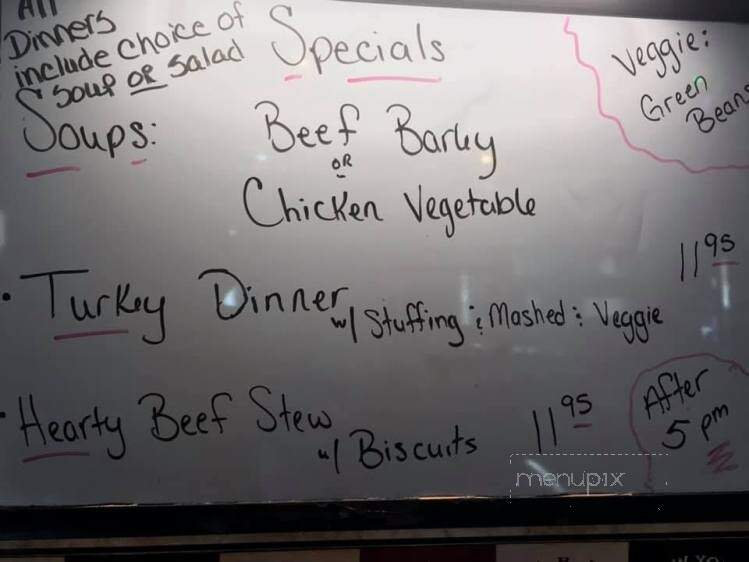 All
Dinners
include choice of
Soup or Salad
Specials
Veggie:
Green
Beans
Soups:
Beef Barley
OR
Chicken Vegetable
• Turkey Dinner 11 95
w/ Stuffing & Mashed & Veggie
• Hearty Beef Stew
w/ Biscuits 11 95
After
5 pm
menupix